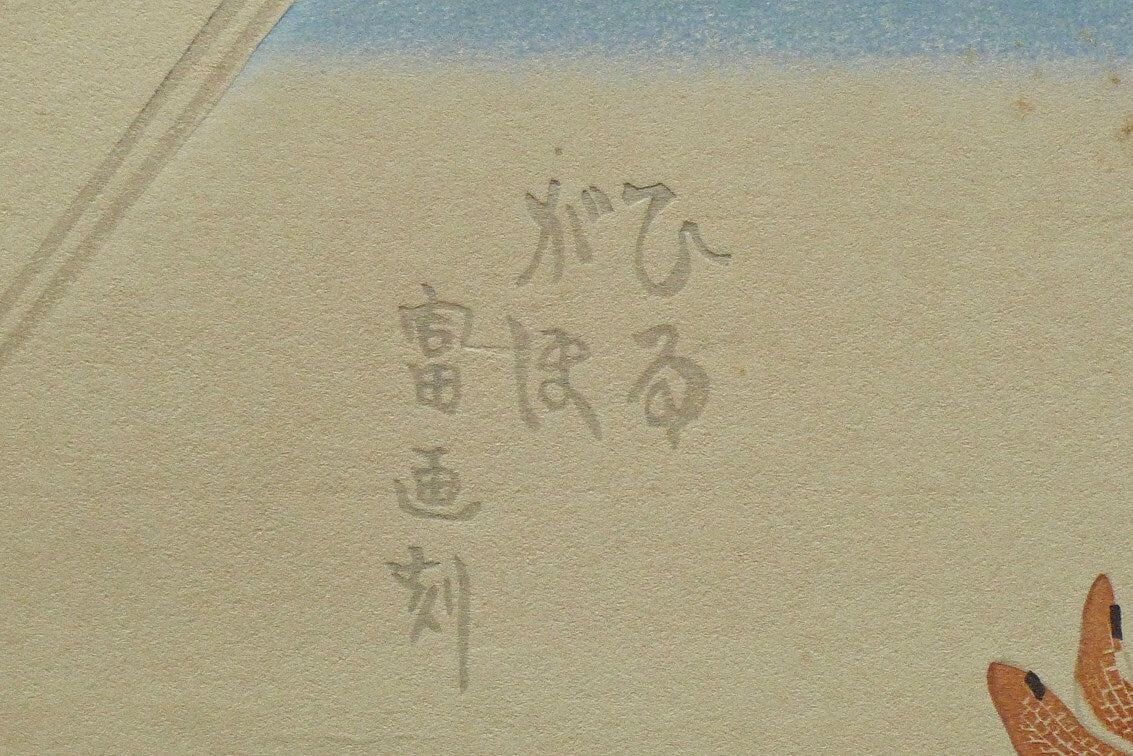 ひる
がほ
富画刻